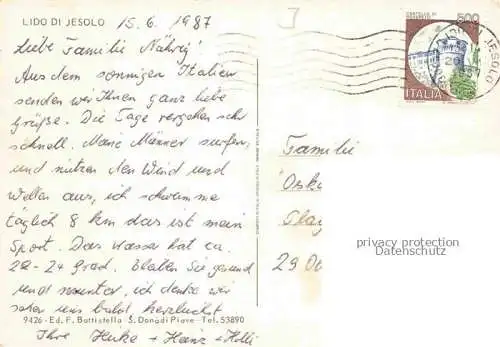 LIDO DI JESOLO 15.6.1987
Liebe Familie Nährig!
Aus dem sonnigen Italien
senden wir Ihnen ganz liebe
Grüße. Die Tage vergehen sehr
schnell. Meine Männer surfen,
und nutzen den Wind und
Wellen aus, ich schwimme
täglich 8 km das ist mein
Sport. Das Wasser hat ca.
22-24 Grad. Bleiben Sie gesund
und munter, ich denke wir
sehen uns bald herzlichst
9426 - Ed. F. Battistella S. Donà di Piave - Tel. 53890
Ihre + Heinz +
500
ITALIA
JESOLO
Familie
Osk
29 Ol
privacy protection
Datenschutz